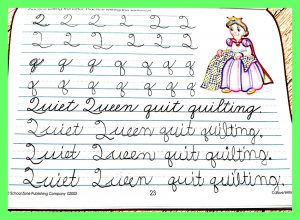 2 2 2 2 2 2
2 2 2 2 2 2 2
q q q q q q q
q q q q q q q q
Quiet Queen quit quilting.
Quiet Queen quit quilting.
Quiet Queen quit quilting.
Quiet Queen quit quilting.
School Zone Publishing Company ©2003
23